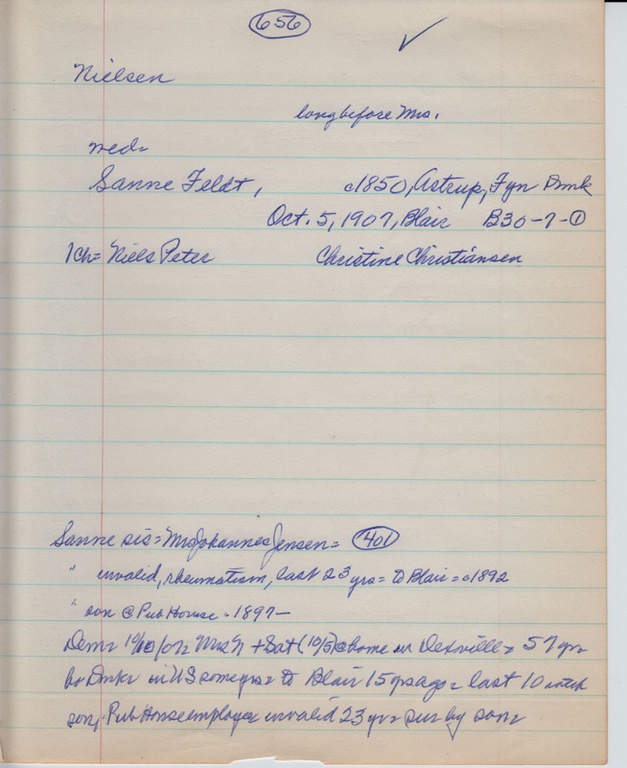 656
Nielsen
long before Mrs.
med=
Sanne Feldt, c1850, Astrup, Fyn Dmk
Oct. 5, 1907, Blair B30-7-①
1ch= Niels Peter Christine Christiansen
Sanne sis= Mrs Johannes Jensen= 401
" invalid, rheumatism, last 23 yrs= to Blair= c1892
" son @ Pub House - 1897-
Dem= 10/10/07= Mrs N + Sat (10/5) @ home in Dexville= 57 yr=
b= Dmk= in US some yrs= to Blair 15 yrs ago= last 10 with
son, Pub House employee invalid 23 yr= sur by son=